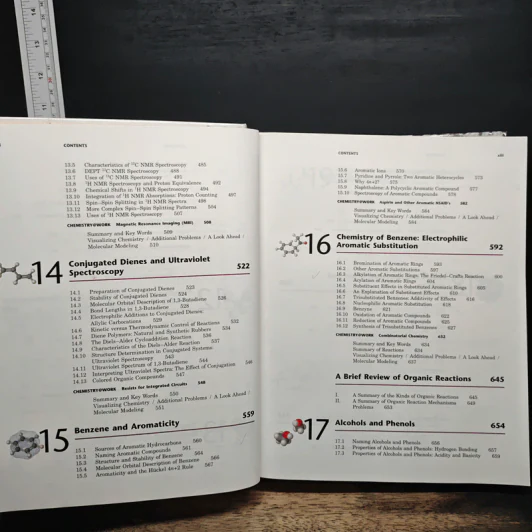 CONTENTS
13.5 Characteristics of ¹³C NMR Spectroscopy 485
13.6 DEPT ¹³C NMR Spectroscopy 488
13.7 Uses of ¹³C NMR Spectroscopy 491
13.8 ¹H NMR Spectroscopy and Proton Equivalence 492
13.9 Chemical Shifts in ¹H NMR Spectroscopy 494
13.10 Integration of ¹H NMR Absorptions: Proton Counting 497
13.11 Spin–Spin Splitting in ¹H NMR Spectra 498
13.12 More Complex Spin–Spin Splitting Patterns 504
13.13 Uses of ¹H NMR Spectroscopy 507
CHEMISTRY@WORK Magnetic Resonance Imaging (MRI) 508
Summary and Key Words 509
Visualizing Chemistry / Additional Problems / A Look Ahead /
Molecular Modeling 510
14 Conjugated Dienes and Ultraviolet
Spectroscopy 522
14.1 Preparation of Conjugated Dienes 523
14.2 Stability of Conjugated Dienes 524
14.3 Molecular Orbital Description of 1,3-Butadiene 526
14.4 Bond Lengths in 1,3-Butadiene 528
14.5 Electrophilic Additions to Conjugated Dienes:
Allylic Carbocations 529
14.6 Kinetic versus Thermodynamic Control of Reactions 532
14.7 Diene Polymers: Natural and Synthetic Rubbers 534
14.8 The Diels–Alder Cycloaddition Reaction 536
14.9 Characteristics of the Diels–Alder Reaction 537
14.10 Structure Determination in Conjugated Systems:
Ultraviolet Spectroscopy 543
14.11 Ultraviolet Spectrum of 1,3-Butadiene 544
14.12 Interpreting Ultraviolet Spectra: The Effect of Conjugation 546
14.13 Colored Organic Compounds 547
CHEMISTRY@WORK Resists for Integrated Circuits 548
Summary and Key Words 550
Visualizing Chemistry / Additional Problems / A Look Ahead /
Molecular Modeling 551
15 Benzene and Aromaticity 559
15.1 Sources of Aromatic Hydrocarbons 560
15.2 Naming Aromatic Compounds 561
15.3 Structure and Stability of Benzene 564
15.4 Molecular Orbital Description of Benzene 566
15.5 Aromaticity and the Hückel 4n+2 Rule 567
CONTENTS
15.6 Aromatic Ions 570
15.7 Pyridine and Pyrrole: Two Aromatic Heterocycles 573
15.8 Why 4n+2?
15.9 Naphthalene: A Polycyclic Aromatic Compound 577
15.10 Spectroscopy of Aromatic Compounds
CHEMISTRY@WORK Aspirin and Other Aromatic NSAID's
Summary and Key Words 584
Visualizing Chemistry / Additional Problems / A Look Ahead /
Molecular Modeling 584
16 Chemistry of Benzene: Electrophilic
Aromatic Substitution 592
16.1 Bromination of Aromatic Rings 593
16.2 Other Aromatic Substitutions
16.3 Alkylation of Aromatic Rings: The Friedel–Crafts Reaction
16.4 Acylation of Aromatic Rings 604
16.5 Substituent Effects in Substituted Aromatic Rings
16.6 An Explanation of Substituent Effects 610
16.7 Trisubstituted Benzenes: Additivity of Effects
16.8 Nucleophilic Aromatic Substitution
16.9 Benzyne 621
16.10 Oxidation of Aromatic Compounds
16.11 Reduction of Aromatic Compounds
16.12 Synthesis of Trisubstituted Benzenes 627
CHEMISTRY@WORK Combinatorial Chemistry 632
Summary and Key Words 634
Summary of Reactions
Visualizing Chemistry / Additional Problems / A Look Ahead /
Molecular Modeling 637
A Brief Review of Organic Reactions 645
I A Summary of the Kinds of Organic Reactions 645
II. A Summary of Organic Reaction Mechanisms
Problems 653
17 Alcohols and Phenols 654
17.1 Naming Alcohols and Phenols
17.2 Properties of Alcohols and Phenols: Hydrogen Bonding 657
17.3 Properties of Alcohols and Phenols: Acidity and Basicity